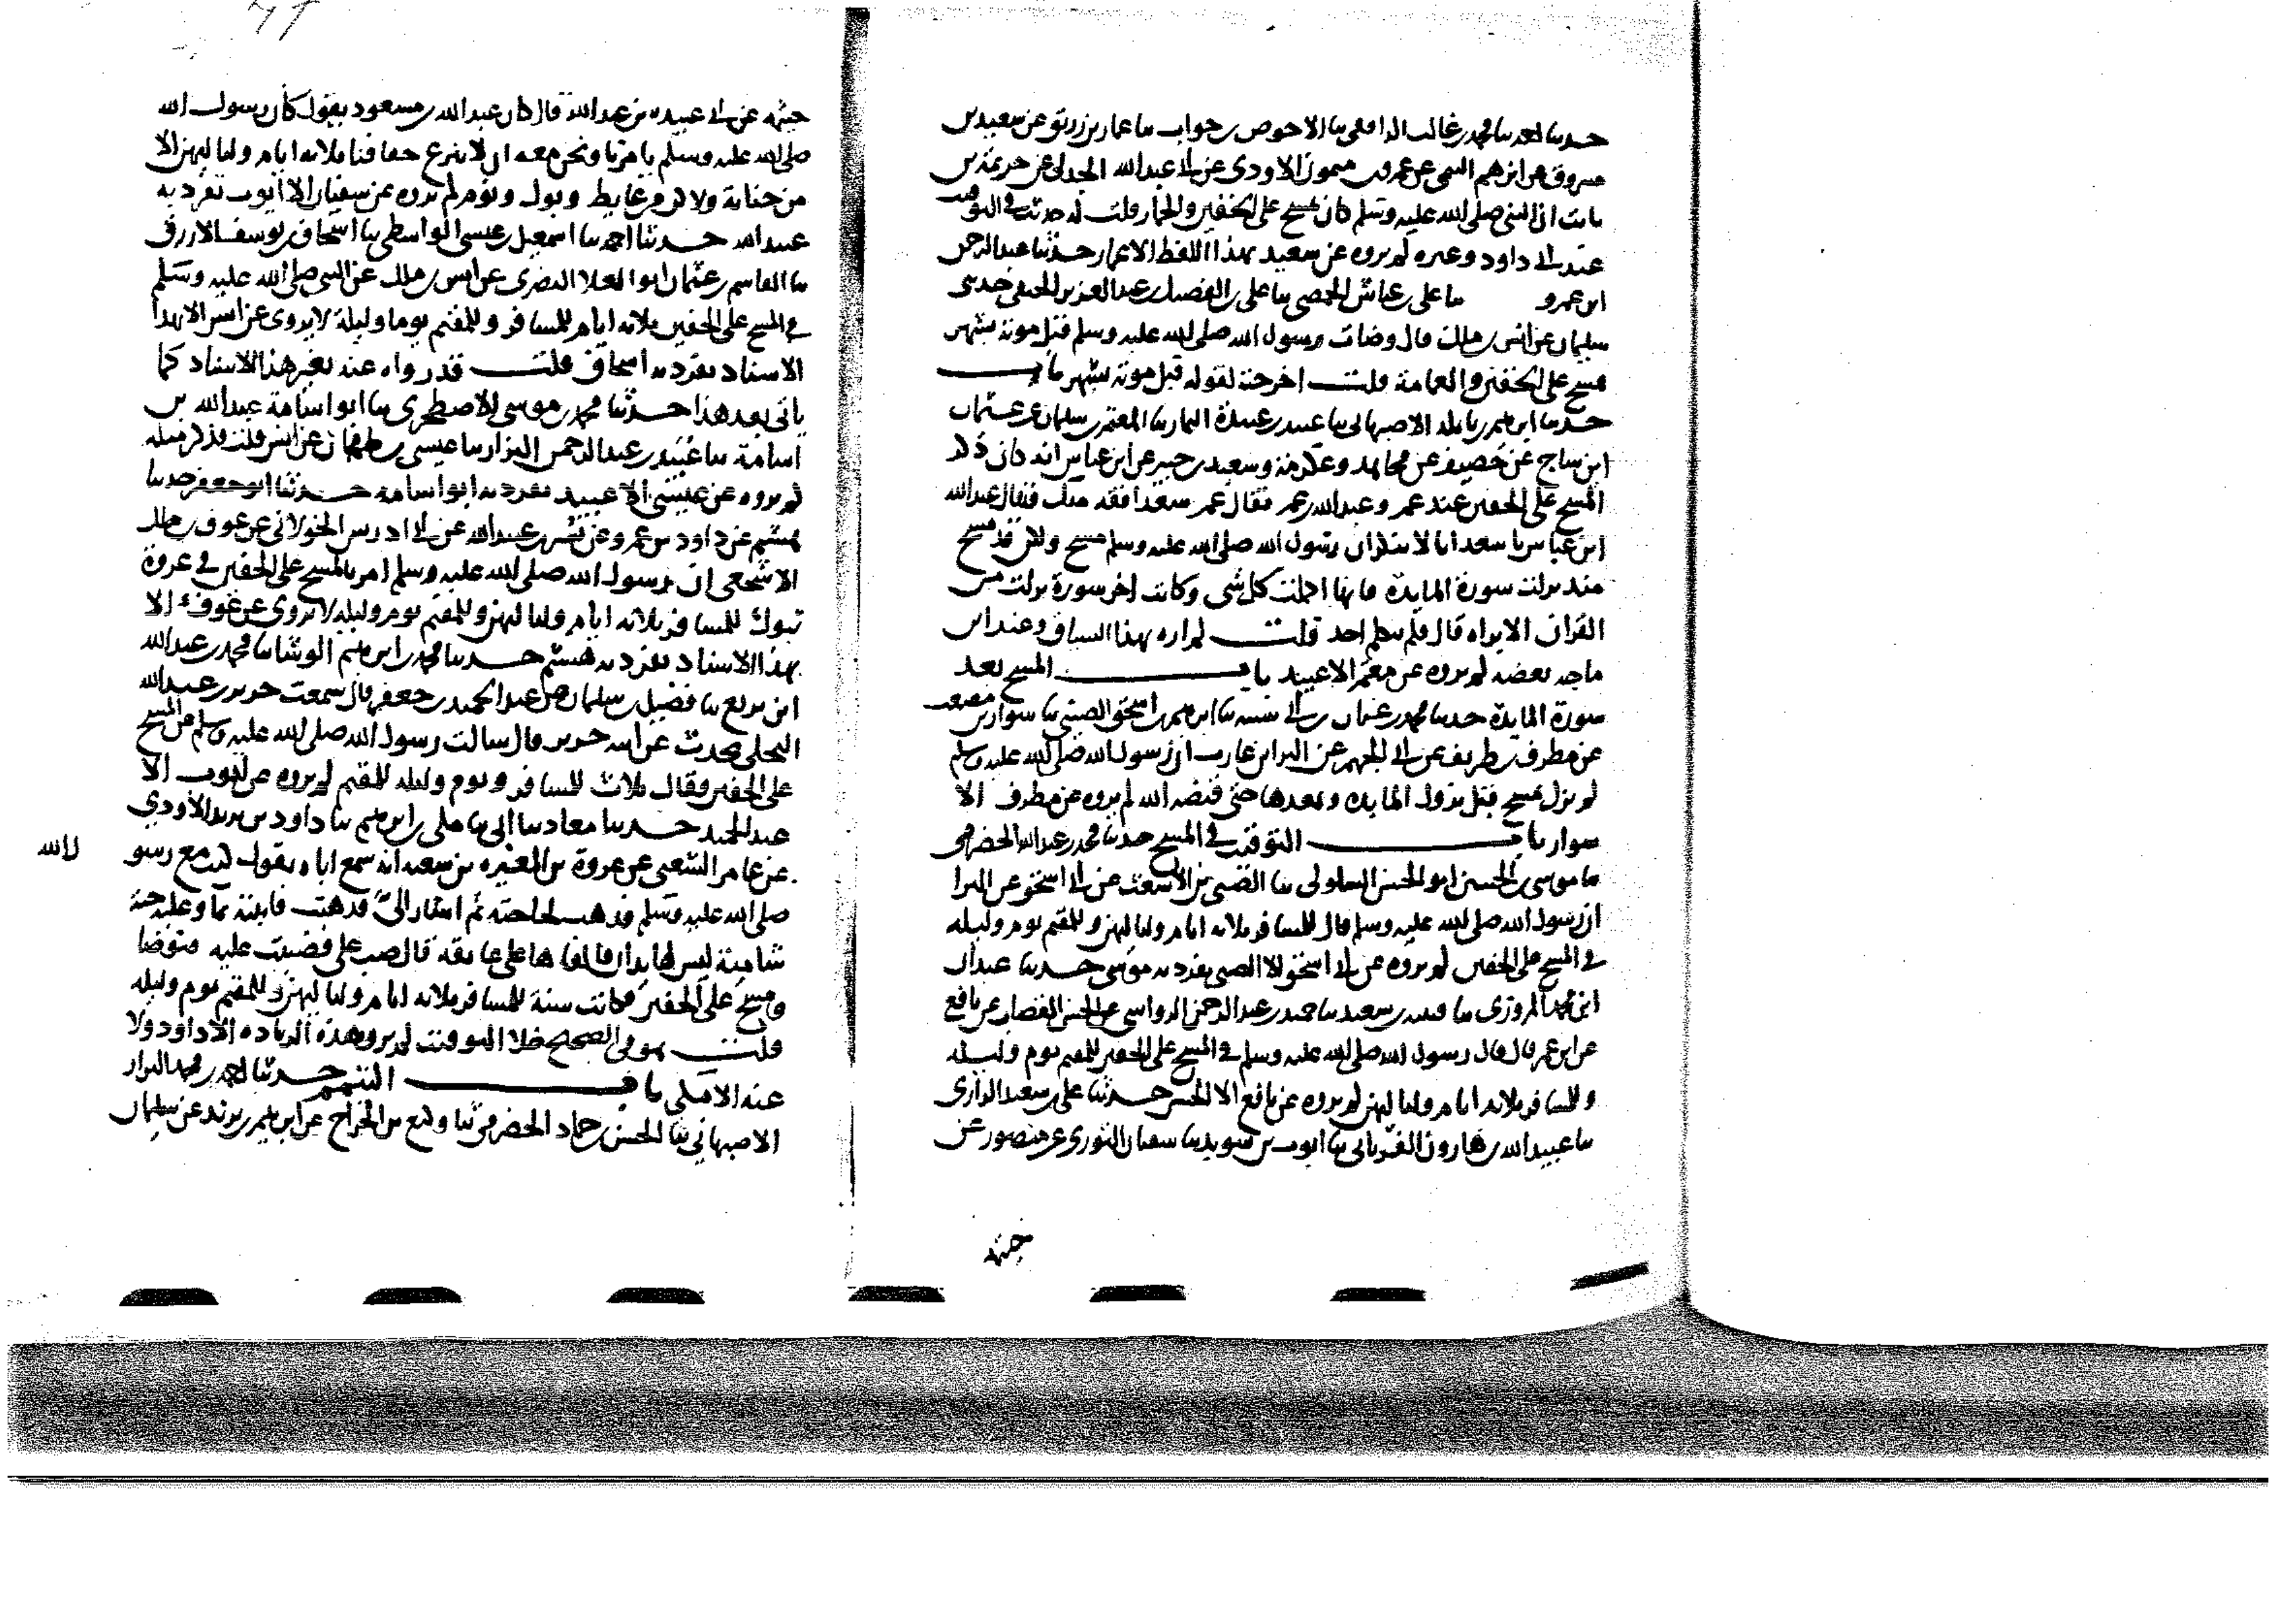 حدثنا احمد نا محمد بن غالب الرافقي نا الاحوص بن جواب نا عمار بن رزيق عن سعيد بن
مسروق عن ابرهيم التيمي عن عمرو بن ميمون الاودي عن ابي عبدالله الجدلي عن خزيمة بن
ثابت ان النبي صلى الله عليه وسلم كان يمسح على الخفين والخمار قلت له حديث في التوقيت
عند ابي داود وغيره لم يروه عن سعيد بهذا اللفظ الا عمار حدثنا عبدالرحمن
ابن عمرو نا علي بن عياش الحمصي نا علي بن الفضيل بن عبدالعزيز الحنفي حدثني
سليمان عن انس بن ملك قال وضات رسول الله صلى الله عليه وسلم قبل موته بشهر
فمسح على الخفين والعمامة قلت اخرجته لقوله قبل موته بشهر باب
حدثنا ابرهيم بن نايلة الاصبهاني نا عبيد بن عبيدة التمار نا المعتمر بن سليمان عن عثمان
ابن ساج عن خصيف عن مجاهد وعكرمة وسعيد بن جبير عن ابن عباس انه كان ذكر
المسح على الخفين عند عمر وعبدالله بن عمر فقال عمر سعد افقه منك فقال عبدالله
ابن عباس يا سعد انا لا ننكر ان رسول الله صلى الله عليه وسلم مسح ولكن قد مسح
منذ نزلت سورة المايدة فانها احكمت كل شي وكانت اخر سورة نزلت من
القران الا براه قال فلم يتكلم احد قلت لم اره بهذا السياق وعند ابن
ماجه بعضه لم يروه عن معتمر الا عبيد باب المسح بعد
سورة المايدة حدثنا محمد بن عثمان بن ابي شيبه نا ابرهيم بن اسحق الصيني نا سوار بن مصعب
عن مطرف بن طريف عن ابي الجهم عن البرا بن عازب ان رسول الله صلى الله عليه وسلم
لم يزل يمسح قبل نزول المايدة وبعدها حتى قبضه الله لم يروه عن مطرف الا
سوار باب التوقيت في المسح حدثنا محمد بن عبدالله الحضرمي
نا موسى بن الحسين ابو الحسن السلولي نا الصبي بن الاشعث عن ابي اسحق عن البرا
ان رسول الله صلى الله عليه وسلم قال للمسافر ثلاثه ايام ولياليهن وللمقيم يوم وليله
في المسح على الخفين لم يروه عن ابي اسحق الا الصبي تفرد به موسى حدثنا عبدان
ابن محمد المروزي نا قتيبه بن سعيد نا حميد بن عبدالرحمن الرواسي عن الحسن القصاب عن نافع
عن ابن عمر قال قال رسول الله صلى الله عليه وسلم في المسح على الخفين للمقيم يوم وليله
وللمسافر ثلاثه ايام ولياليهن لم يروه عن نافع الا الحسن حدثنا علي بن سعيد الرازي
نا عبيدالله بن هارون الفريابي نا ايوب بن سويد نا سفيان الثوري عن منصور عن
خيثمه
خيثمه عن ابي عبيده بن عبدالله قال كان عبدالله بن مسعود يقول كان رسول الله
صلى الله عليه وسلم يامرنا ونحن معه ان لا ننزع خفافنا ثلاثه ايام ولياليهن الا
من جنابة ولا من غايط وبول ونوم لم يروه عن سفيان الا ايوب تفرد به
عبيدالله حدثنا احمد نا اسمعيل بن عيسى الواسطي نا اسحاق بن يوسف الازرق
نا القاسم بن عثمان ابو العلا البصري عن انس بن ملك عن النبي صلى الله عليه وسلم
في المسح على الخفين ثلاثه ايام للمسافر وللمقيم يوما وليلة لا يروى عن انس الا بهذا
الاسناد تفرد به اسحاق قلت قد رواه عنه بغير هذا الاسناد كما
ياتي بعد هذا حدثنا محمد بن موسى الاصطخري نا ابو اسامة عبدالله بن
اسامة نا عبيد بن عبدالرحمن البزار نا عيسى بن طهمان عن انس قلت فذكر مثله
لم يروه عن عيسى الا عبيد تفرد به ابو اسامة حدثنا ابو جعفر حدثنا
هشيم عن داود بن عمرو عن بسر بن عبيدالله عن ابي ادريس الخولاني عن عوف بن ملك
الاشجعي ان رسول الله صلى الله عليه وسلم امر بالمسح على الخفين في غزوة
تبوك للمسافر ثلاثه ايام ولياليهن وللمقيم يوم وليله لا يروى عن عوف الا
بهذا الاسناد تفرد به هشيم حدثنا محمد بن ابرهيم الوشا نا محمد بن عبدالله
ابن بزيع نا فضيل بن سليمان عن عبدالحميد بن جعفر قال سمعت جرير بن عبدالله
البجلي يحدث عن ابيه جرير قال سالت رسول الله صلى الله عليه وسلم عن المسح
على الخفين فقال ثلاث للمسافر ويوم وليله للمقيم لم يروه عن ايوب الا
عبدالحميد حدثنا معاد نا ابي نا مكي بن ابرهيم نا داود بن يزيد الاودي
عن عامر الشعبي عن عروة بن المغيره بن سعيد انه سمع اباه يقول كنت مع رسو
ل الله
صلى الله عليه وسلم فذهب لحاجته ثم اشار الي فذهبت فاتيته بما وعليه جبة
شامية ليس لها يدان فالقاها على عاتقه قال صب علي فصببت عليه فتوضا
ومسح على الخفين فكانت سنة للمسافر ثلاثه ايام ولياليهن وللمقيم يوم وليله
قلت هو في الصحيح خلا التوقيت لم يرو هذه الزياده الا داود ولا
عنه الا مكي باب التيمم حدثنا احمد بن محمد البزار
الاصبهاني نا الحسن بن حماد الحضرمي نا وكيع بن الجراح عن ابرهيم بن يزيد عن سليمان